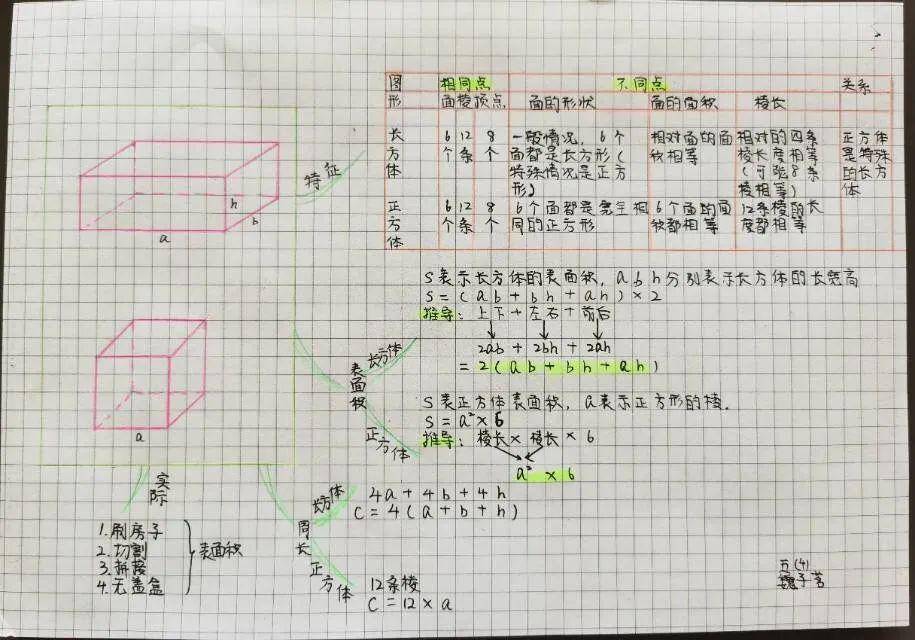 图 相同点 不同点 关系
形 面棱顶点 面的形状 面的面积 棱长
长 6 12 8 一般情况，6个 相对面的面 相对的四条 正方体
方 个 条 个 面都是长方形( 积相等 棱长度相等 是特殊
体 特殊情况是正方 (可能8条 的长方
形) 棱相等) 体
正 6 12 8 6个面都是完全相 6个面的面 12条棱的长
方 个 条 个 同的正方形 积都相等 度都相等
体
特征
h
b
a
a
S表示长方体的表面积，a b h分别表示长方体的长宽高
S=(ab+bh+ah)×2
推导：上下+左右+前后
2ab+2bh+2ah
=2(ab+bh+ah)
表面积
长方体
正方体
S表正方体表面积，a表示正方形的棱.
S=a²×6
推导：棱长×棱长×6
a²×6
周长
长方体
4a+4b+4h
C=4(a+b+h)
正方体
12条棱
C=12×a
实际
1.刷房子
2.切割
3.拼接
4.无盖盒
表面积
五(4)